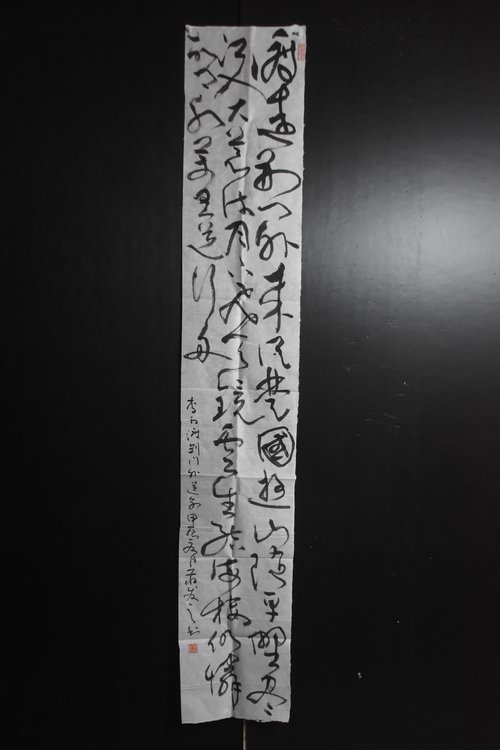 渡遠荆门外来從楚國遊山随平野尽
江入大荒流月下飞天镜雲生结海楼仍憐
故乡水萬里送行舟
李白渡荆门外送别甲辰 月 发之书